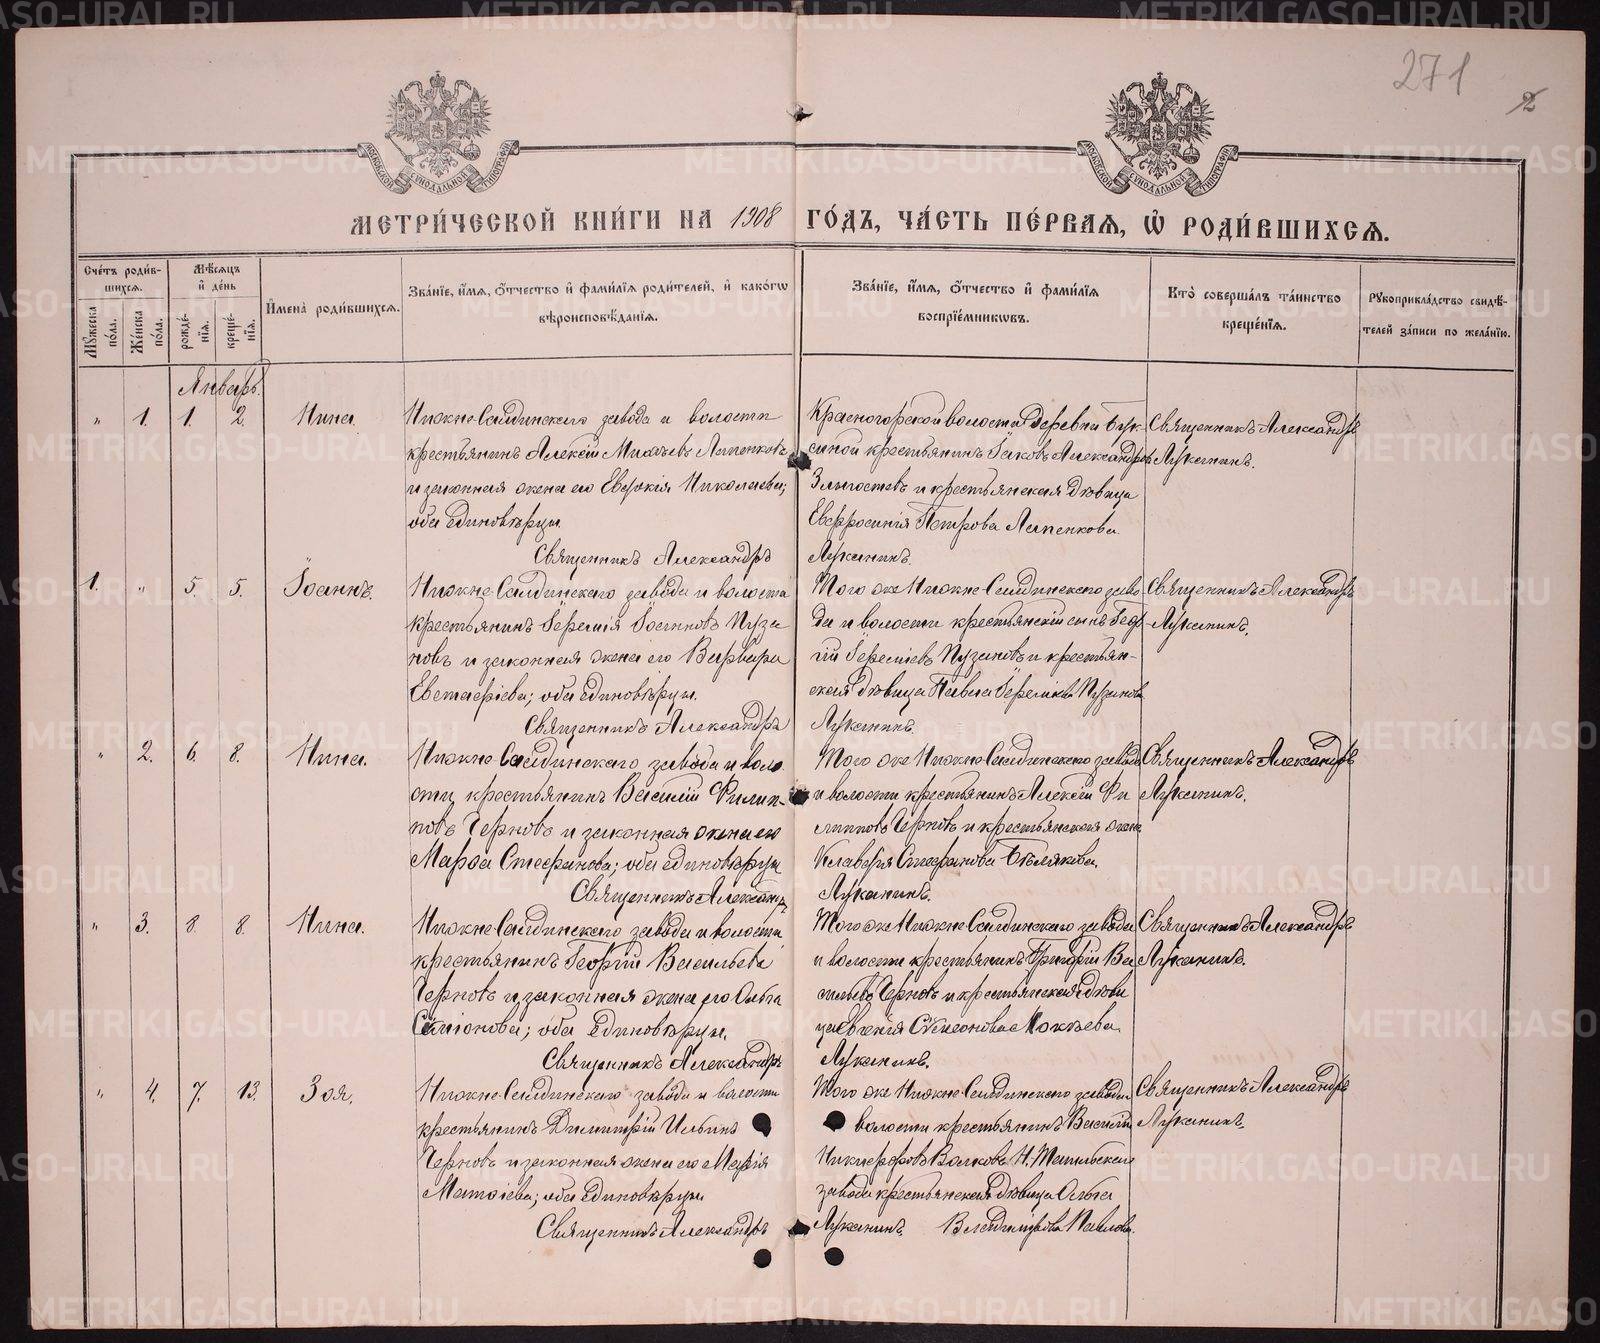 271
2
МОСКОВСКОЙ СѴНОДАЛЬНОЙ ТИПОГРАФІИ
МОСКОВСКОЙ СѴНОДАЛЬНОЙ ТИПОГРАФІИ
МЕТРИ́ЧЕСКОЙ КНИ́ГИ НА 1908 ГО́ДЪ, ЧА́СТЬ ПЕ́РВАЯ, Ѡ РОДИ́ВШИХСЯ.
Сче́тъ роди́в-
шихся.
Мѣ́сяцъ
и҆ де́нь
Мꙋ́жеска
по́ла.
Же́нска
по́ла.
рожде́-
нїя.
креще́-
нїя.
И҆мена̀ роди́вшихся.
Зва́нїе, и҆́мя, ѻ҆́тчество и҆ фами́лїя роди́телей, и҆ како́гѡ
вѣроисповѣ́данїя.
Зва́нїе, и҆́мя, ѻ҆́тчество и҆ фами́лїя
воспрїе́мникѡвъ.
Кто̀ соверша́лъ та́инство
креще́нїя.
Рꙋкоприкла́дство свидѣ́-
телей за́писи по жела́нїю.
Январь.
" 1. 1. 2. Нина.
Нижне-Салдинскаго завода и волости
крестьянинъ Алексій Михаевъ Лапенковъ
и законная жена его Евдокія Николаева;
оба единовѣрцы
Священникъ Александръ
Красногорской волости деревни Бук-
синой крестьянинъ Іаковъ Александровъ
и крестьянская дѣвица
Евфросинія Петрова Лапенкова.
Луканинъ.
Священникъ Александръ
Луканинъ.
1. " 5. 5. Іоаннъ.
Нижне-Салдинскаго завода и волости
крестьянинъ Іеремія Іосифовъ Пуза
новъ и законная жена его Варвара
Евстафіева; оба единовѣрцы.
Священникъ Александръ
Того же Нижне-Салдинскаго заво
да и волости крестьянскій сынъ Геор
гій Іереміевъ Пузановъ и крестьян-
ская дѣвица Павла Іереміева Пузанова
Луканинъ.
Священникъ Александръ
Луканинъ.
" 2. 6. 8. Нина.
Нижне-Салдинскаго завода и воло
сти крестьянинъ Василій Филип-
повъ Черновъ и законная жена его
Марѳа Стефанова; оба единовѣрцы
Священникъ Александръ
Того же Нижне-Салдинскаго завода
и волости крестьянинъ Алексій Фи
липповъ Черновъ и крестьянская жена
Клавдія Стефанова Бѣлякова.
Луканинъ.
Священникъ Александръ
Луканинъ.
" 3. 8. 8. Нина.
Нижне-Салдинскаго завода и волости
крестьянинъ Георгій Васильевъ
Черновъ и законная жена его Ольга
Симіонова; оба единовѣрцы.
Священникъ Александръ
Того же Нижне-Салдинскаго завода
и волости крестьянинъ Григорій Ва
сильевъ Черновъ и крестьянская дѣви
ца Евгенія Сѵмеонова Мокѣева
Луканинъ.
Священникъ Александръ
Луканинъ.
" 4. 7. 13. Зоя.
Нижне-Салдинскаго завода и волости
крестьянинъ Димитрій Ильинъ
Черновъ и законная жена его Марія
Матѳіева; оба единовѣрцы
Священникъ Александръ
Того же Нижне-Салдинскаго завода и
волости крестьянинъ Василій
Никифоровъ Волковъ, Н. Тагильскаго
завода крестьянская дѣвица Ольга
Луканинъ. Владимірова Павлова.
Священникъ Александръ
Луканинъ.
METRIKI.GASO-URAL.RU